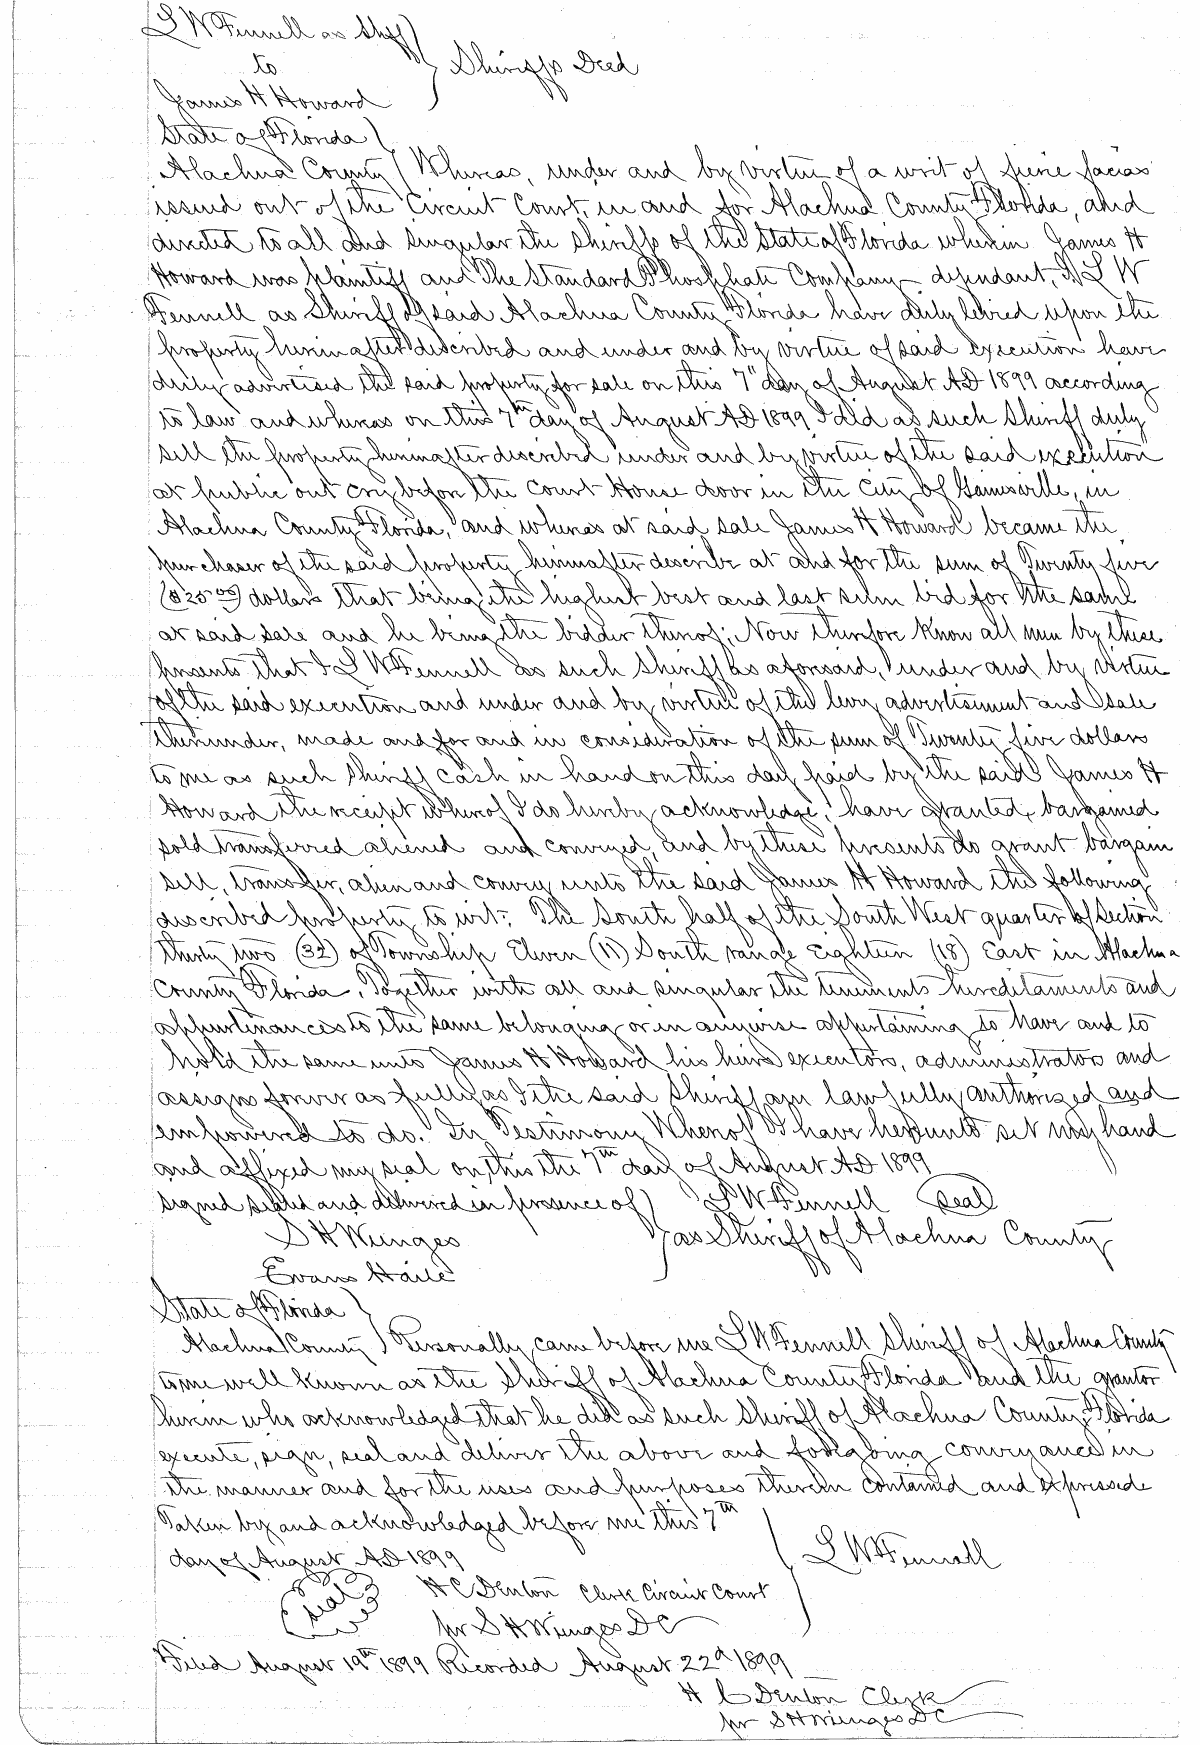 L W Fennell as Shff
to } Sheriffs Deed
James H Howard
State of Florida }
Alachua County } Whereas, under and by virtue of a writ of fierie facias
issued out of the Circuit Court, in and for Alachua County Florida, and
directed to all and singular the sheriffs of the State of Florida wherein James H
Howard was plaintiff and The Standard Phosphate Company defendant, I, L W
Fennell as Sheriff of said Alachua County Florida have duly levied upon the
property hereinafter described and under and by virtue of said execution have
duly advertised the said property for sale on this 7th day of August AD 1899 according
to law and whereas on this 7th day of August AD 1899 I did as such Sheriff duly
sell the property hereinafter described under and by virtue of the said execution
at public out cry before the Court House door in the City of Gainesville, in
Alachua County Florida, and whereas at said sale James H Howard became the
purchaser of the said property hereinafter describe at and for the sum of Twenty five
($25 00) dollars that being the highest best and last sum bid for the same
at said sale and he being the bidder thereof; Now therefore Know all men by these
presents that I L W Fennell as such Sheriff as aforesaid, under and by virtue
of the said execution and under and by virtue of the levy advertisement and sale
thereunder, made and for and in consideration of the sum of Twenty five dollars
to me as such Sheriff cash in hand on this day paid by the said James H
Howard the receipt whereof I do hereby acknowledge, have granted, bargained
sold transferred aliened and conveyed, and by these presents do grant bargain
sell, transfer, alien and convey unto the said James H Howard the following
described property to wit: The South half of the South West quarter of Section
thirty two (32) of Township Eleven (11) South range Eighteen (18) East in Alachua
County Florida, Together with all and singular the tenements hereditaments and
appurtenances to the same belonging or in anywise appertaining to have and to
hold the same unto James H Howard his heirs executors, administrators and
assigns forever as fully as I the said Sheriff am lawfully authorized and
empowered to do. In Testimony Whereof I have hereunto set my hand
and affixed my seal on this the 7th day of August AD 1899
signed sealed and delivered in presence of } L W Fennell (seal)
S H Wienges } as Sheriff of Alachua County
Evans Haile
State of Florida }
Alachua County } Personally came before me L W Fennell Sheriff of Alachua County
to me well known as the Sheriff of Alachua County Florida and the grantor
herein who acknowledged that he did as such Sheriff of Alachua County, Florida
execute, sign, seal and deliver the above and foregoing conveyance in
the manner and for the uses and purposes therein contained and expressed
Taken by and acknowledged before me this 7th
day of August AD 1899 } L W Fennell
(seal) H C Denton Clerk Circuit Court
pr S H Wienges DC
Filed August 19th 1899 Recorded August 22d 1899
H C Denton Clerk
pr S H Wienges DC